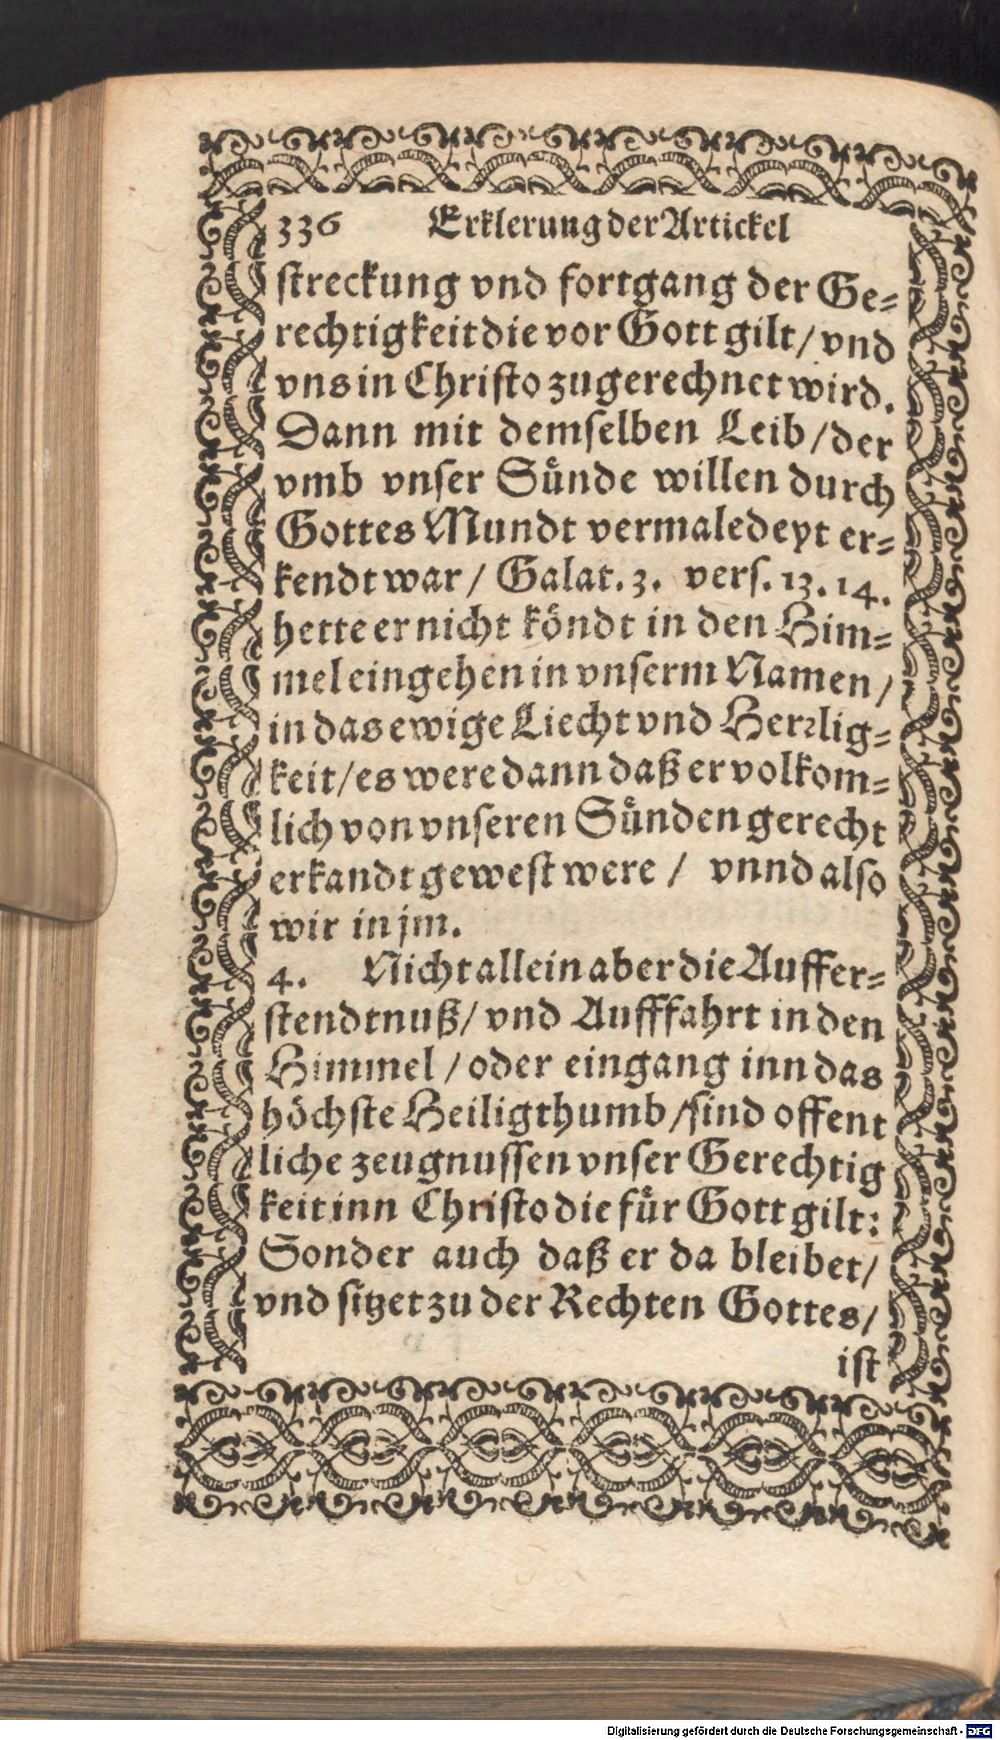 336 Erklerung der Artickel
streckung vnd fortgang der Ge⸗
rechtigkeit die vor Gott gilt/ vnd
vns in Christo zugerechnet wird.
Dann mit demselben Leib/ der
vmb vnser Sünde willen durch
Gottes Mundt vermaledeyt er⸗
kendt war/ Galat. 3. vers. 13. 14.
hette er nicht köndt in den Him⸗
mel eingehen in vnserm Namen/
in das ewige Liecht vnd Herrlig⸗
keit/ es were dann daß er volkom⸗
lich von vnseren Sünden gerecht
erkandt gewest were/ vnnd also
wir in jm.
4. Nicht allein aber die Auffer⸗
stendtnuß/ vnd Aufffahrt in den
Himmel/ oder eingang inn das
höchste Heiligthumb/ sind offent
liche zeugnussen vnser Gerechtig
keit inn Christo die für Gott gilt:
Sonder auch daß er da bleibet/
vnd sitzet zu der Rechten Gottes/
ist
Digitalisierung gefördert durch die Deutsche Forschungsgemeinschaft - DFG